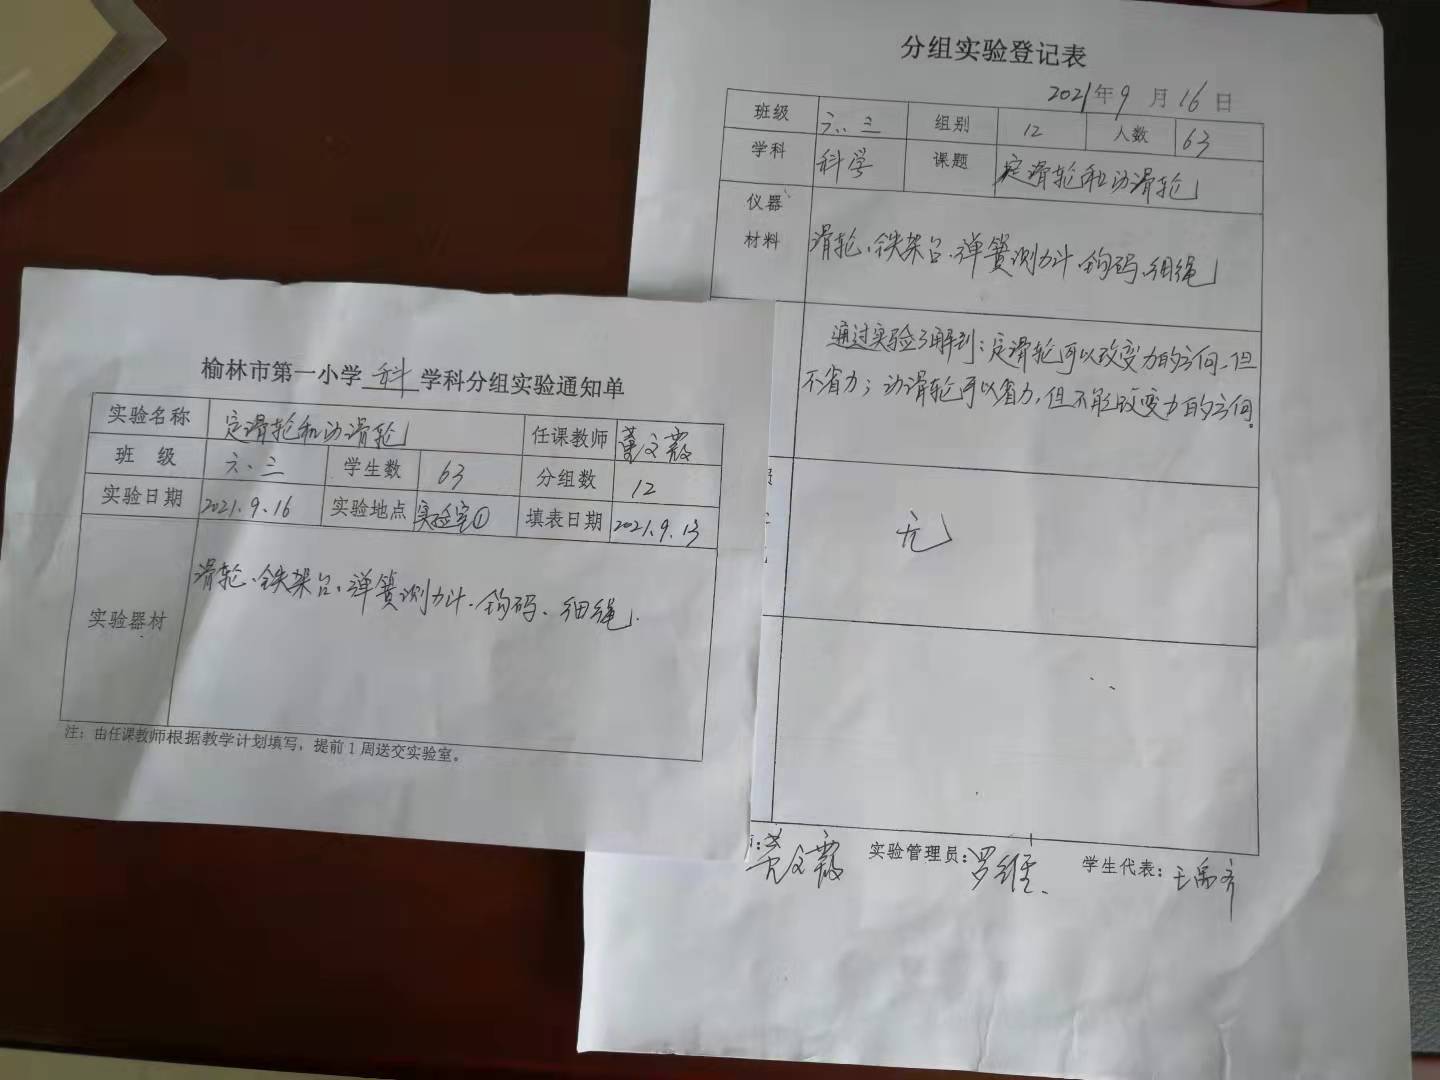 分组实验登记表
2021年9月16日
班级 六.三 组别 12 人数 63
学科 科学 课题 定滑轮和动滑轮
仪器
材料
滑轮、铁架台、弹簧测力计、钩码、细绳
通过实验了解到:定滑轮可以改变力的方向,但
不省力;动滑轮可以省力,但不能改变力的方向。
无
文霞 实验管理员:罗维 学生代表:
榆林市第一小学 科 学科分组实验通知单
实验名称 定滑轮和动滑轮 任课教师 文霞
班 级 六.三 学生数 63 分组数 12
实验日期 2021.9.16 实验地点 实验室① 填表日期 2021.9.13
实验器材
滑轮、铁架台、弹簧测力计、钩码、细绳.
注:由任课教师根据教学计划填写,提前1周送交实验室。